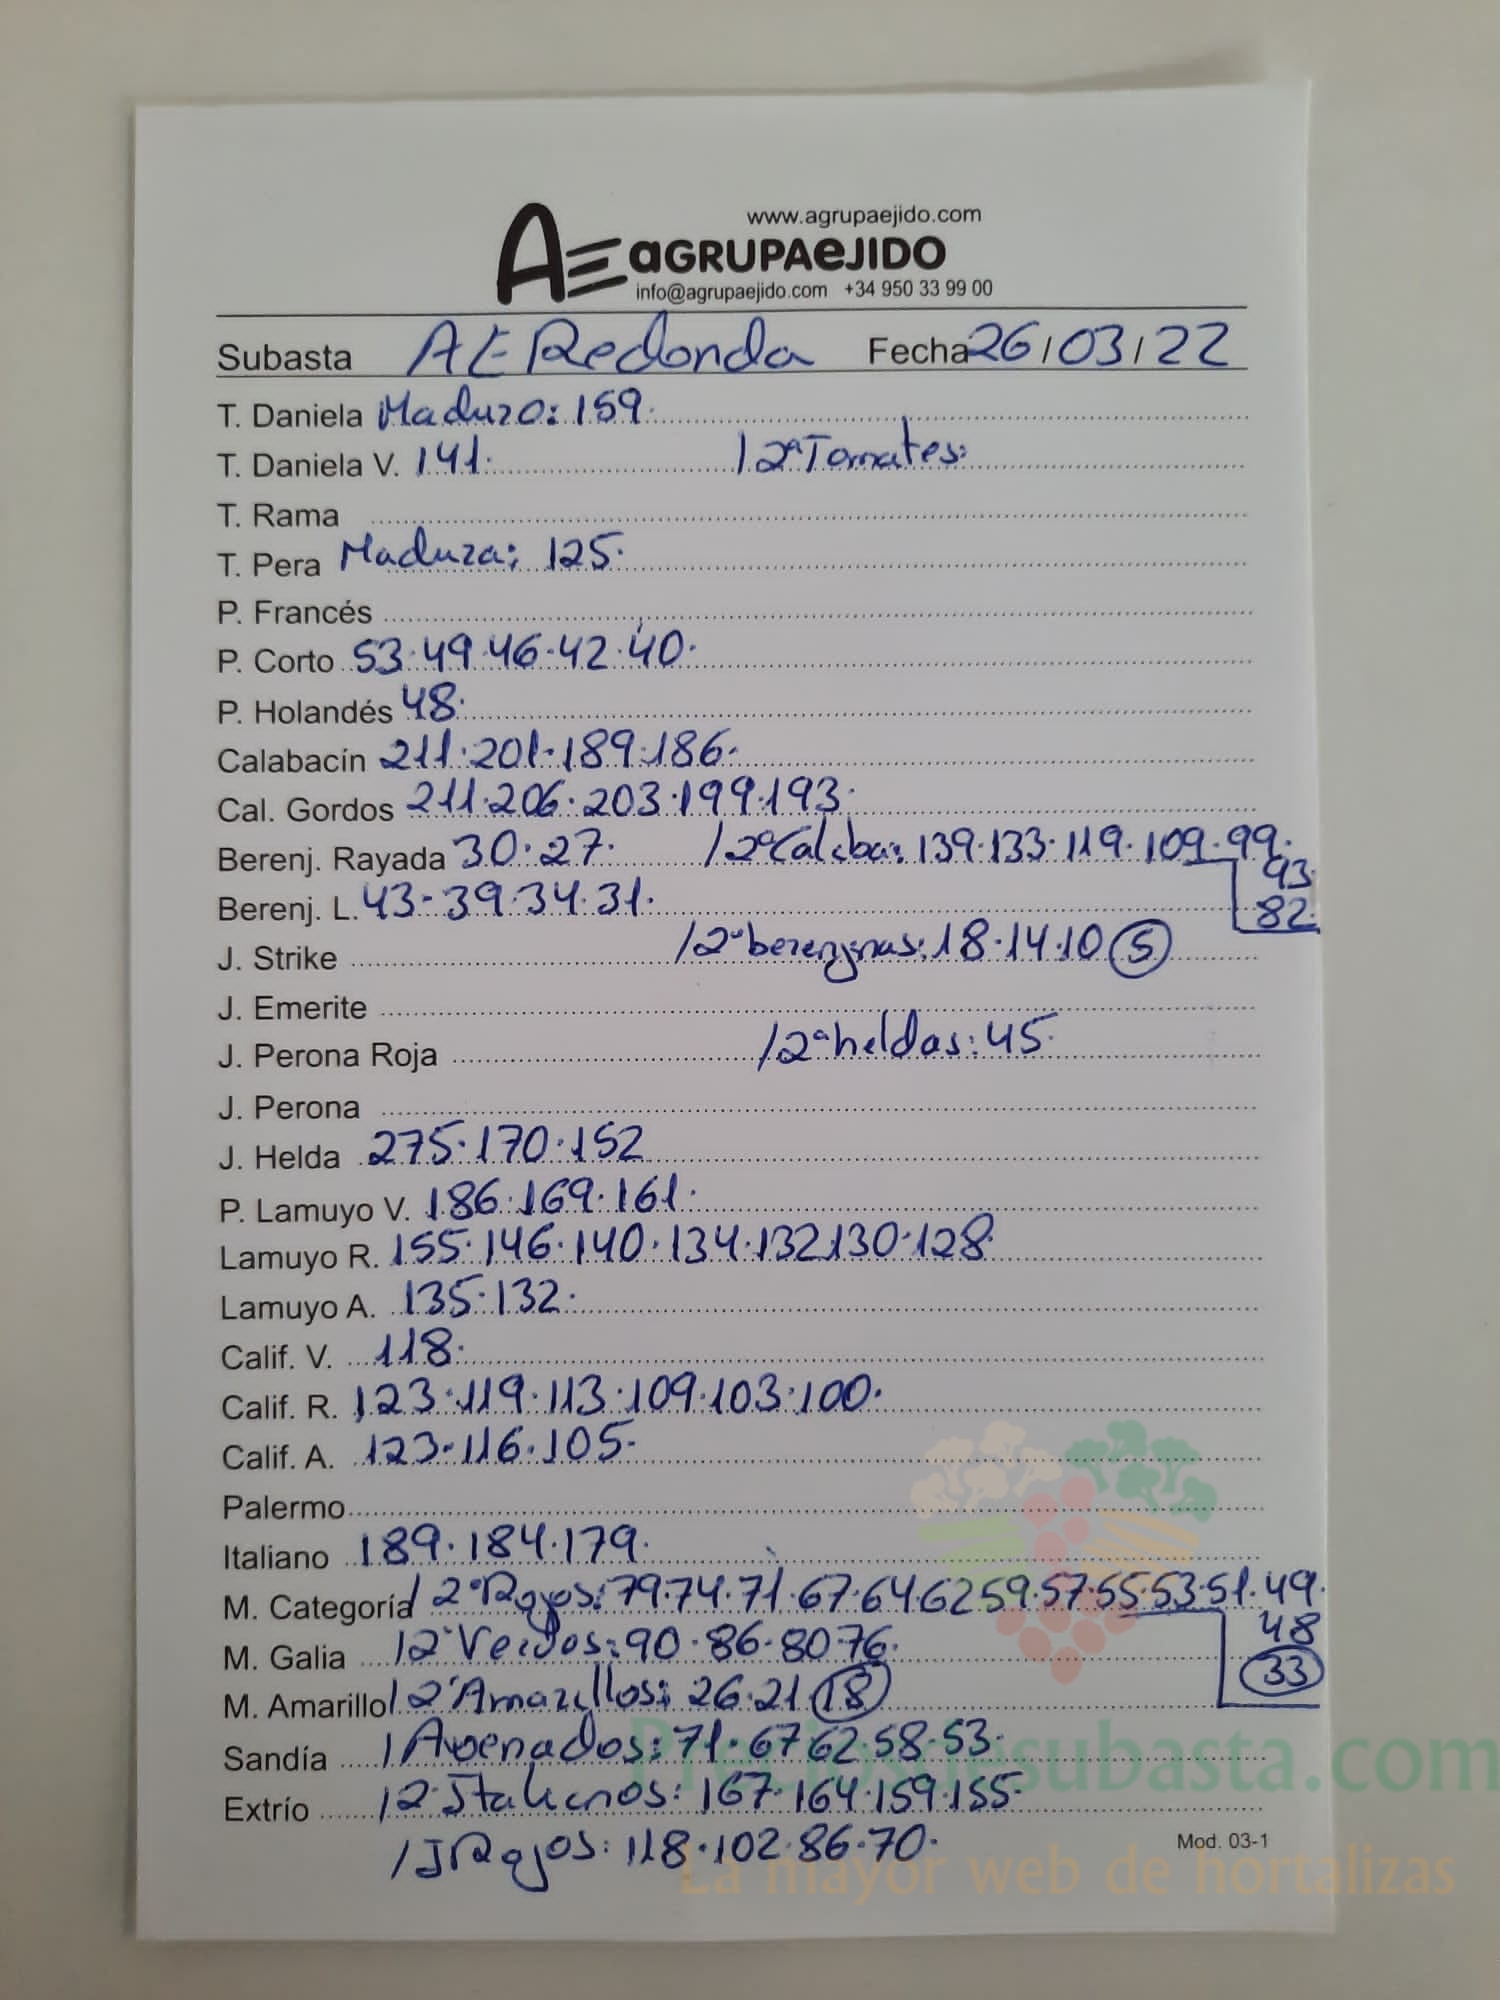 www.agrupaejido.com
AE aGRUPAeJIDO
info@agrupaejido.com +34 950 33 99 00
Subasta AE Redonda Fecha 26/03/22
T. Daniela Maduro: 159.
T. Daniela V. 141. / 2ª Tomates:
T. Rama
T. Pera Madura: 125.
P. Francés
P. Corto 53.49.46.42.40.
P. Holandés 48.
Calabacín 211.201.189.186.
Cal. Gordos 211.206.203.199.193.
Berenj. Rayada 30.27. / 2ª Calaba: 139.133.119.109.99.
93.
Berenj. L. 43-39.34.31. 82.
J. Strike / 2ª berenjinas: 18.14.10 (5)
J. Emerite
J. Perona Roja / 2ª heldas: 45.
J. Perona
J. Helda 275.170.152
P. Lamuyo V. 186.169.161.
Lamuyo R. 155.146.140.134.132.130.128
Lamuyo A. 135.132.
Calif. V. 118.
Calif. R. 123.119.113.109.103.100.
Calif. A. 123.116.105.
Palermo
Italiano 189.184.179.
M. Categoría / 2ª Rojos: 79.74.71.67.64.62 59.57.55.53.51.49.
48
M. Galia / 2ª Verdes: 90.86.80.76. (33)
M. Amarillo / 2ª Amarillos: 26.21 (18)
Sandía / Asenados: 71.67 62.58.53.
Extrío / 2ª Italianos: 167.164.159.155.
/ JRojos: 118.102.86.70.
Mod. 03-1
Preciosdesubasta.com
La mayor web de hortalizas